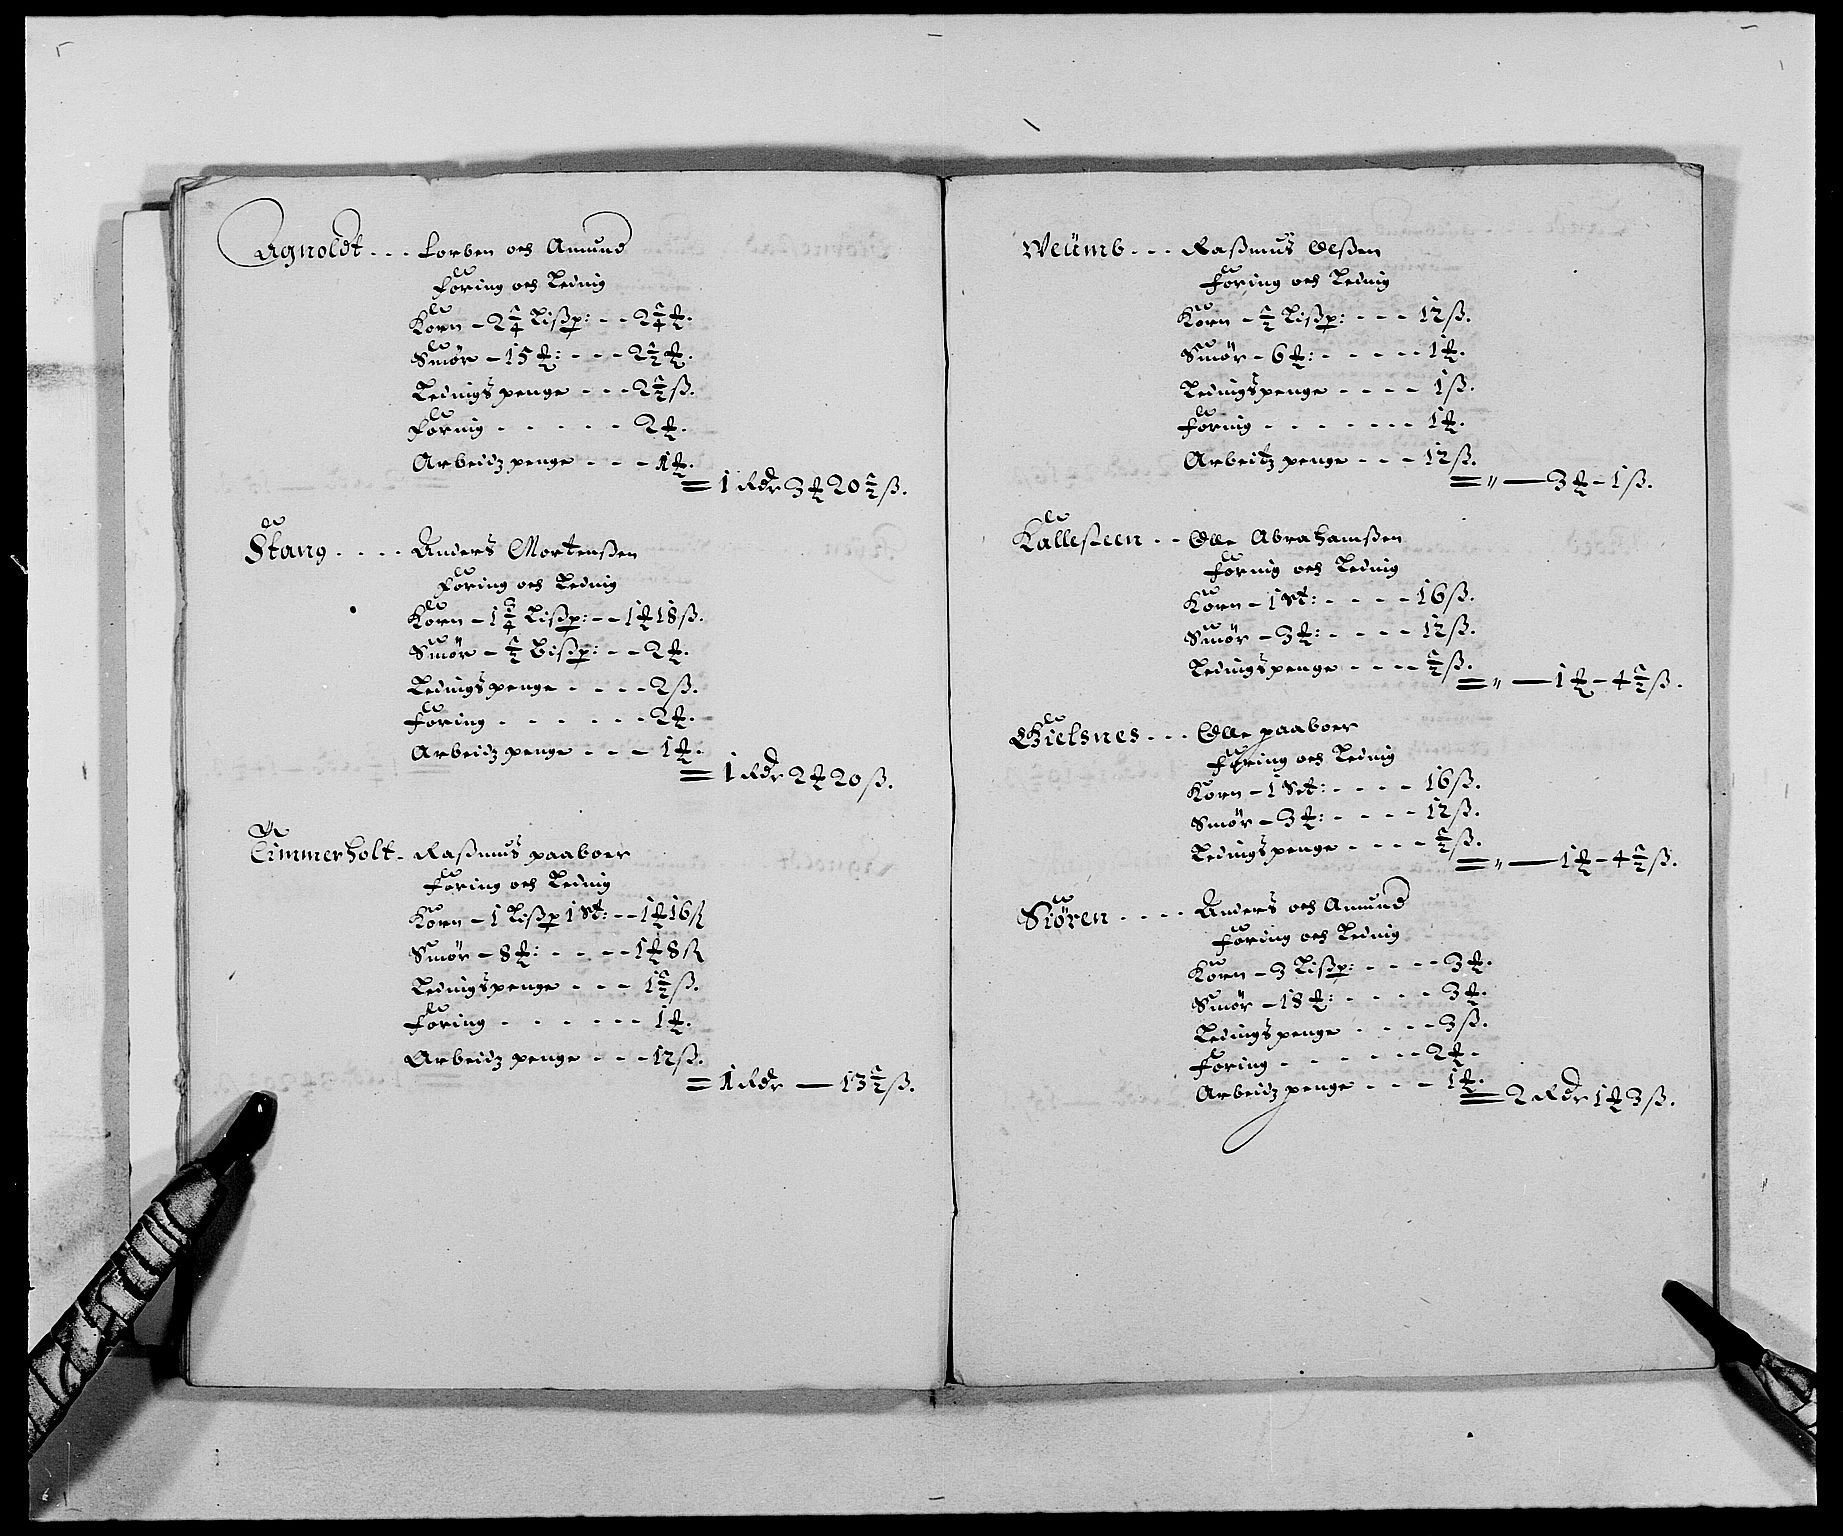 Agnoldt - - - Torben och Amund
Foring och Leding
Korn - 2¼ Lißp: - - 2¼ ℔.
Smør - 15 ℔: - - - 2½ ℔.
Ledingspenge - - - 2½ ß.
Foring - - - - - - 2 ℔.
Arbeidz penge - - - 1 ℔.
= 1 Rdr 3 ℔ 20½ ß.
Stang - - - - Anders Mortenßen
Foring och Leding
Korn - 1¾ Lißp: - - 1 ℔ 18 ß.
Smør - ½ Bißp: - - 2 ℔.
Ledingspenge - - - - 2 ß.
Foring - - - - - - 2 ℔.
Arbeidz penge - - - 1 ℔.
= 1 Rdr 2 ℔ 20 ß.
Timmerholt - Raßmus paaboer
Foring och Leding
Korn - 1 Lißp 1 Set: - - 1 ℔ 16 ß
Smør - 8 ℔: - - - - 1 ℔ 8 ß
Ledingspenge - - - 1½ ß.
Foring - - - - - - 1 ℔.
Arbeidz penge - - - 12 ß.
= 1 Rdr — 13½ ß.
Weumb - - - Raßmus Olßen
Foring och Leding
Korn - ½ Lißp: - - - 12 ß.
Smør - 6 ℔: - - - - - 1 ℔.
Ledingspenge - - - - 1 ß.
Foring - - - - - - - 1 ℔.
Arbeitz penge - - - 12 ß.
= " — 3 ℔ - 1 ß.
Kalleßeen - - Olle Abrahamßen
Foring och Leding
Korn - 1 Set: - - - - 16 ß.
Smør - 3 ℔: - - - - 12 ß.
Ledingspenge - - - - ½ ß.
= " — 1 ℔ - 4½ ß.
Gielsnes - - - Olle paaboer
Foring och Leding
Korn - 1 Set: - - - - 16 ß.
Smør - 3 ℔: - - - - 12 ß.
Ledingspenge - - - - ½ ß.
= " — 1 ℔ - 4½ ß.
Siøren - - - - Anders och Amund
Foring och Leding
Korn - 3 Lißp: - - - - 3 ℔.
Smør - 18 ℔: - - - - 3 ℔.
Ledingspenge - - - - 3 ß.
Foring - - - - - - 2 ℔ -
Arbeidz penge - - - 1 ℔.
= 2 Rdr 1 ℔ 3 ß.